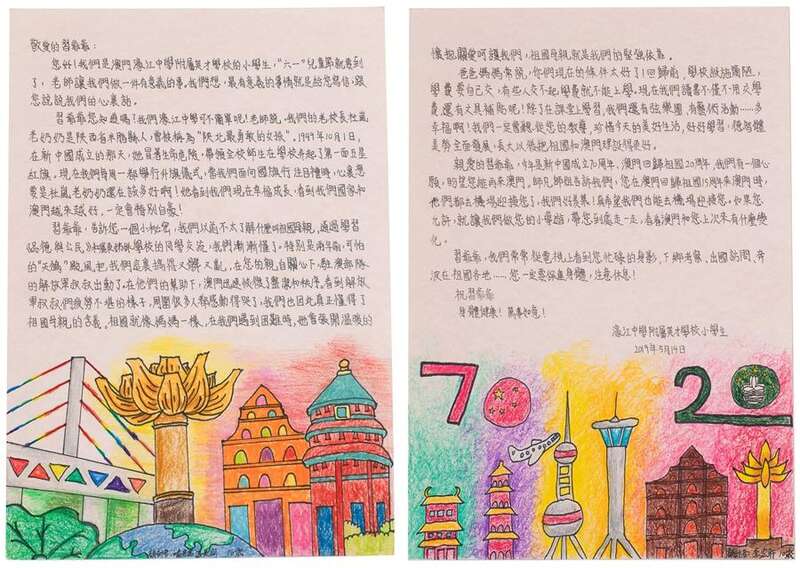 敬愛的習爺爺：
您好！我們是澳門濠江中學附屬英才學校的小學生，“六一”兒童節就要到
了，老師讓我們做一件有意義的事。我們想，最有意義的事情就是給您寫信，跟
您說說我們的心裏話。
習爺爺您知道嗎？我們濠江中學可不簡單呢！老師說，我們的老校長杜嵐
老奶奶是陝西省米脂縣人，曾被稱為“陝北最勇敢的女孩”。1949年10月1日，
在新中國成立的那天，她冒着生命危險，帶領全校師生在學校升起了第一面五星
紅旗。現在我們每周一都舉行升旗儀式，當我們面向國旗行注目禮時，心裏想
要是杜嵐老奶奶還在該多好啊！她看到我們現在幸福成長，看到我們國家和
澳門越來越好，一定會特別自豪！
習爺爺，告訴您一個小秘密，我們以前不太了解什麼叫祖國母親，通過學習
《品德與公民》和
學校的同學交流，我們漸漸懂了。特別是兩年前，可怕
的“天鴿”颱風把我們這裏搞得又髒又亂，在您的親自關心下，駐澳部隊
的解放軍叔叔出動了，在他們的幫助下，澳門迅速恢復了整潔和秩序。看到解放
軍叔叔們疲勞不堪的樣子，周圍很多人都感動得哭了，我們也因此真正懂得了
祖國母親的含義。祖國就像媽媽一樣，在我們遇到困難時，她會張開溫暖的
懷抱關愛呵護我們，祖國母親就是我們的堅強依靠。
爸爸媽媽常說，你們現在的條件太好了！回歸前，學校設施簡陋，
學費要自己交，有些人交不起學費就不能上學。現在我們讀書不僅不用交學
費還有文具補貼呢！除了在課堂上學習，我們還有弦樂團，有藝術活動……多
幸福啊！我們一定會聽從您的教導，珍惜今天的美好生活，好好學習，德智體
美勞全面發展，長大以後把祖國和澳門建設得更好。
親愛的習爺爺，今年是新中國成立70周年，澳門回歸祖國20周年，我們有一個心
願，盼望您能再來澳門。師兄師姐告訴我們，您在澳門回歸祖國15周年來澳門時，
他們都去機場迎接您了，我們好羨慕！真希望我們也能去機場迎接您。如果您
允許，就讓我們做您的小導遊，帶您到處走一走，看看澳門和您上次來有什麼變
化。
習爺爺，我們常常從電視上看到您忙碌的身影，下鄉考察、出國訪問、奔
波在祖國各地……您一定要保重身體，注意休息！
祝習爺爺
身體健康！萬事如意！
濠江中學附屬英才學校小學生
2019年5月14日
70
20